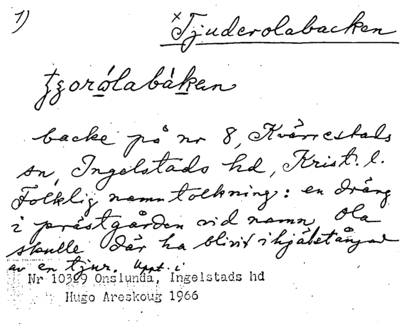 1)
×Tjuderolabacken
tzorólabákan
backe på nr 8, Kvärrestads
sn, Ingelstads hd, Krist. l.
Folklig namntolkning: en dräng
i prästgården vid namn Ola
skulle där ha blivit ihjälstångad
av en tjur. Uppt. i
Nr 10329 Onslunda, Ingelstads hd
Hugo Areskoug 1966